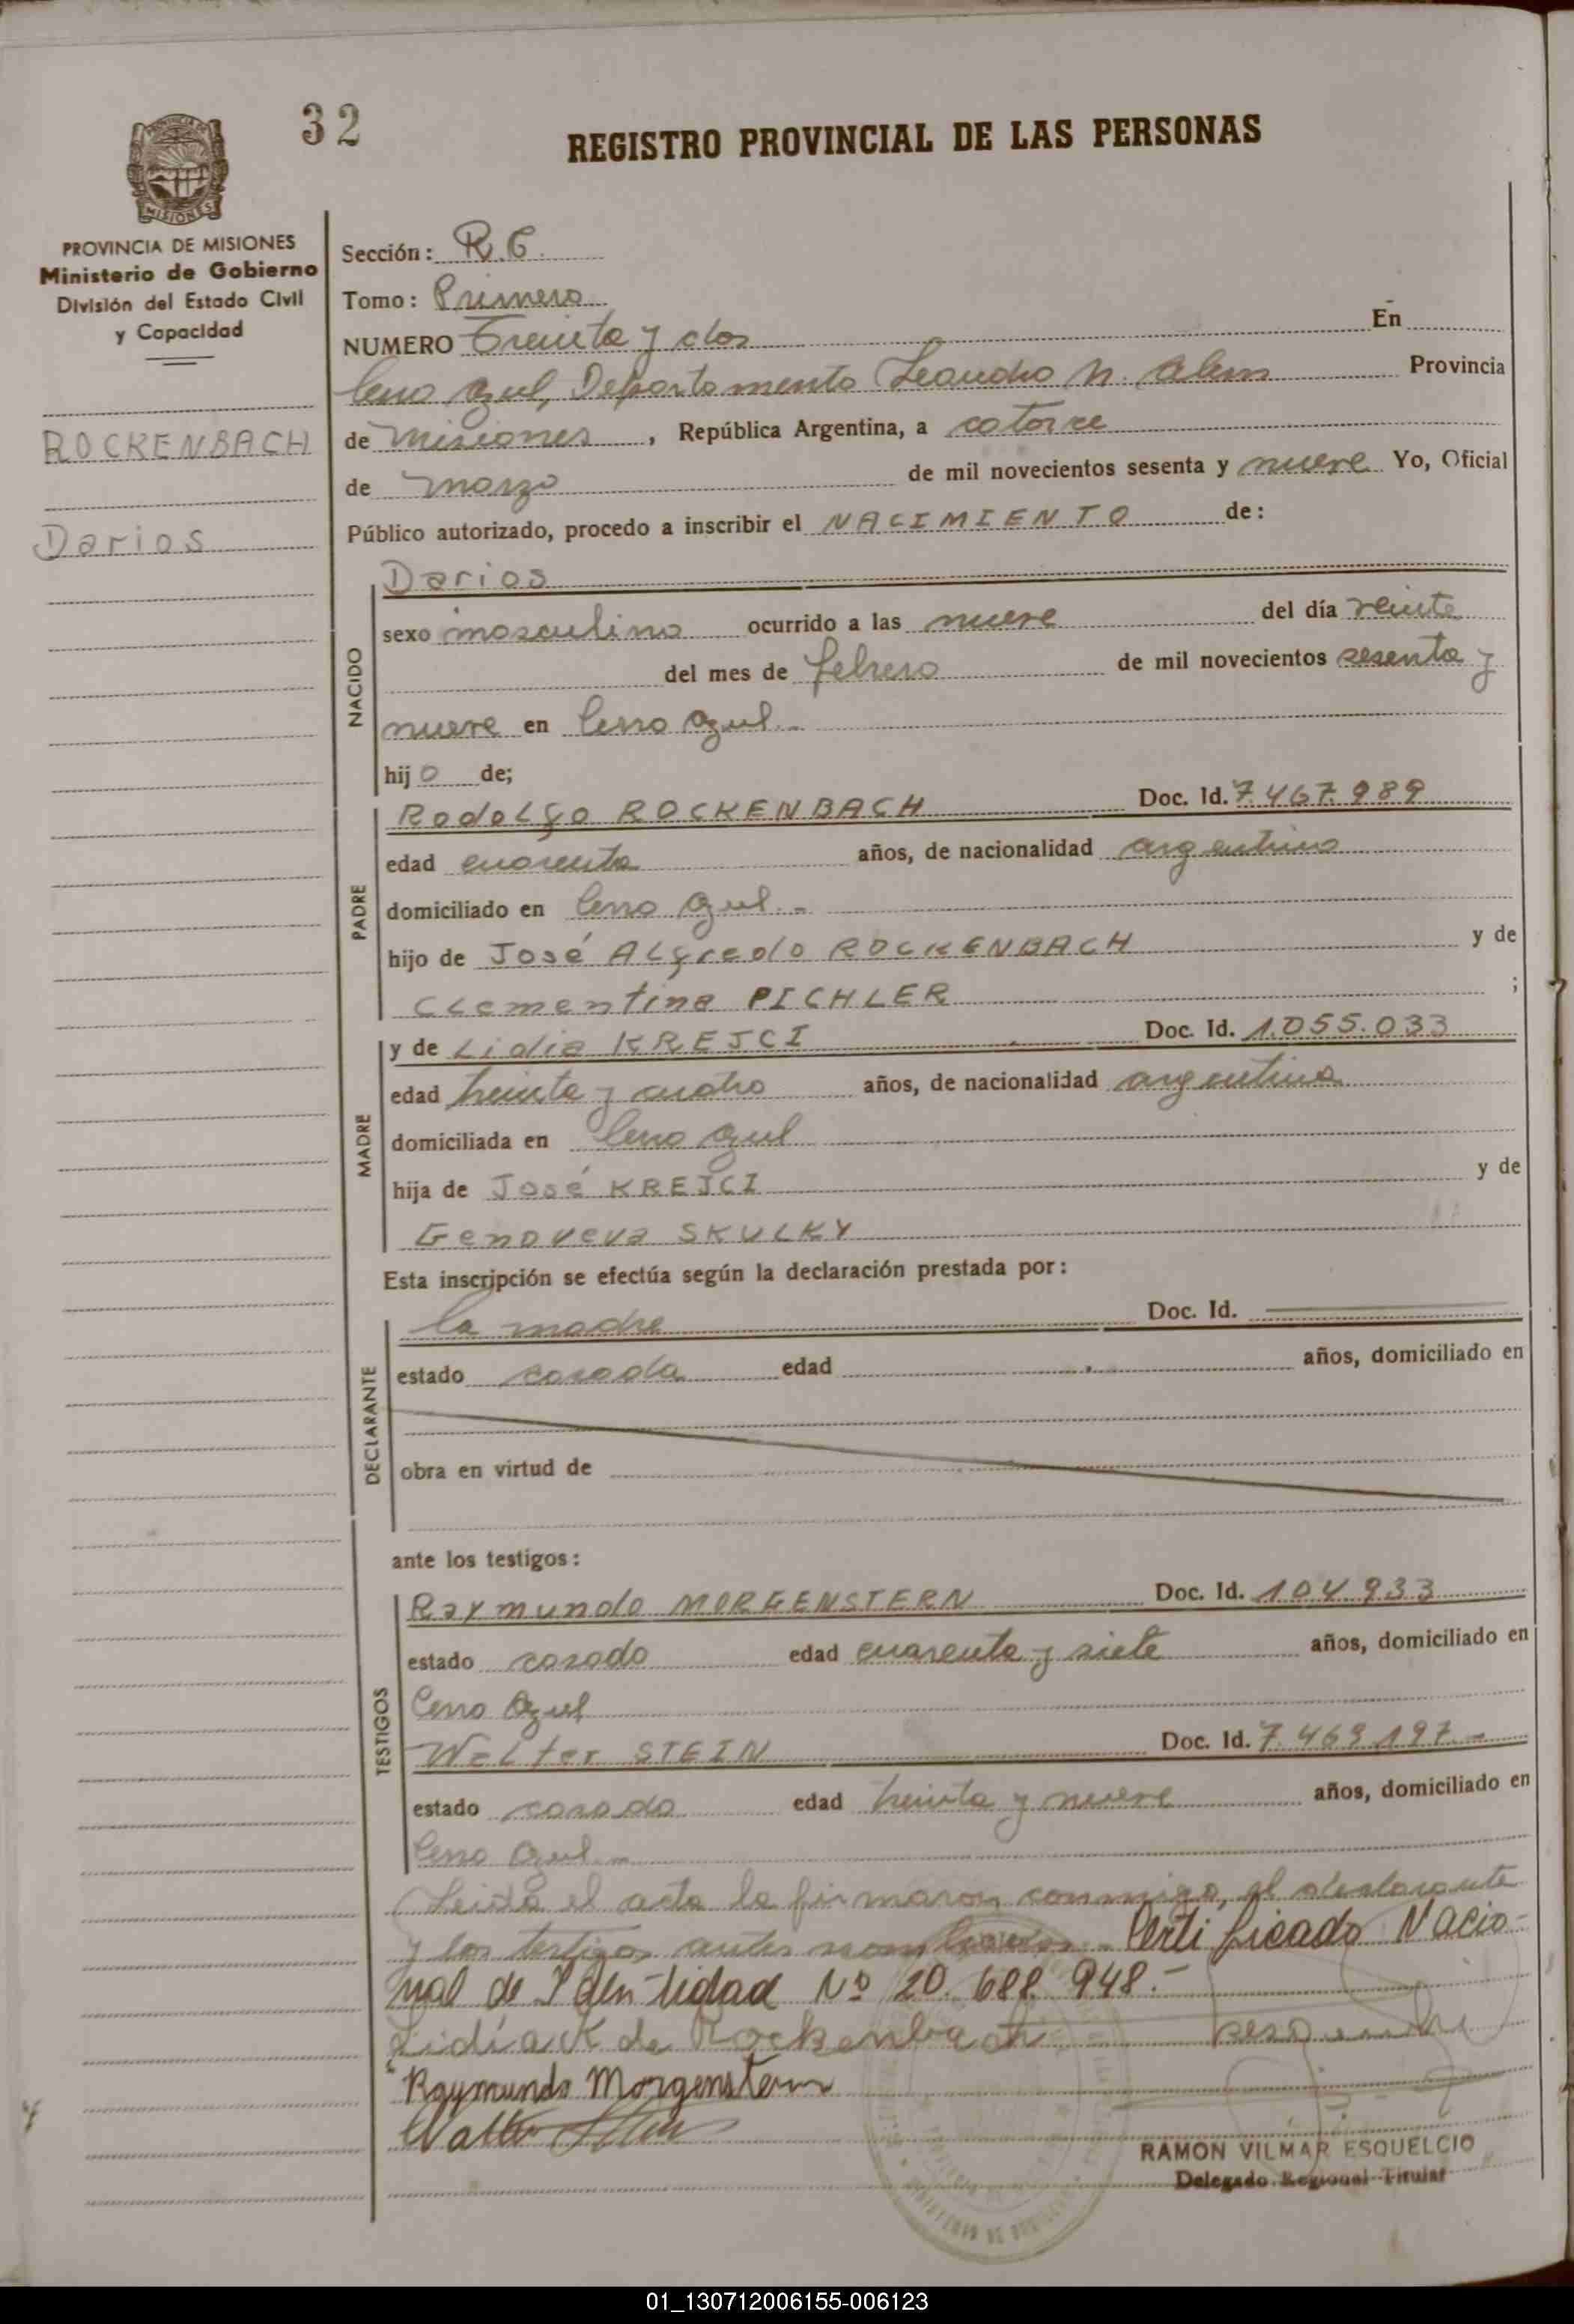 32
REGISTRO PROVINCIAL DE LAS PERSONAS
PROVINCIA DE MISIONES
Ministerio de Gobierno
División del Estado Civil
y Capacidad
ROCKENBACH
Darios
Sección: R.C.
Tomo: Primero
NUMERO Treinta y dos En
Cerro Azul, Departamento Leandro N. Alem Provincia
de Misiones, República Argentina, a catorce
de Marzo de mil novecientos sesenta y nueve Yo, Oficial
Público autorizado, procedo a inscribir el NACIMIENTO de:
NACIDO
Darios
sexo masculino ocurrido a las nueve del día veinte
del mes de febrero de mil novecientos sesenta y
nueve en Cerro Azul.-
hijo de;
PADRE
Rodolfo ROCKENBACH Doc. Id. 7.467.989
edad cuarenta años, de nacionalidad argentino
domiciliado en Cerro Azul.-
hijo de José Alfredo ROCKENBACH y de
Clementina PICHLER ;
MADRE
y de Lidia KREJCI Doc. Id. 1.055.033
edad treinta y cuatro años, de nacionalidad argentina
domiciliada en Cerro Azul
hija de José KREJCI y de
Genoveva SKULKY
Esta inscripción se efectúa según la declaración prestada por:
DECLARANTE
la madre Doc. Id.
estado casada edad años, domiciliado en
obra en virtud de
ante los testigos:
TESTIGOS
Raymundo MORGENSTERN Doc. Id. 104.933
estado casado edad cuarenta y siete años, domiciliado en
Cerro Azul
Walter STEIN Doc. Id. 7.469.197.-
estado casado edad treinta y nueve años, domiciliado en
Cerro Azul.-
Leída el acta la firmaron conmigo, el declarante
y los testigos antes nombrados.- Certificado Nacio-
nal de Identidad Nº 20.688.948.-
Lidia K de Rockenbach
Raymundo Morgenstern
Walter Stein
RAMON VILMAR ESQUELCIO
Delegado Regional Titular
01_130712006155-006123